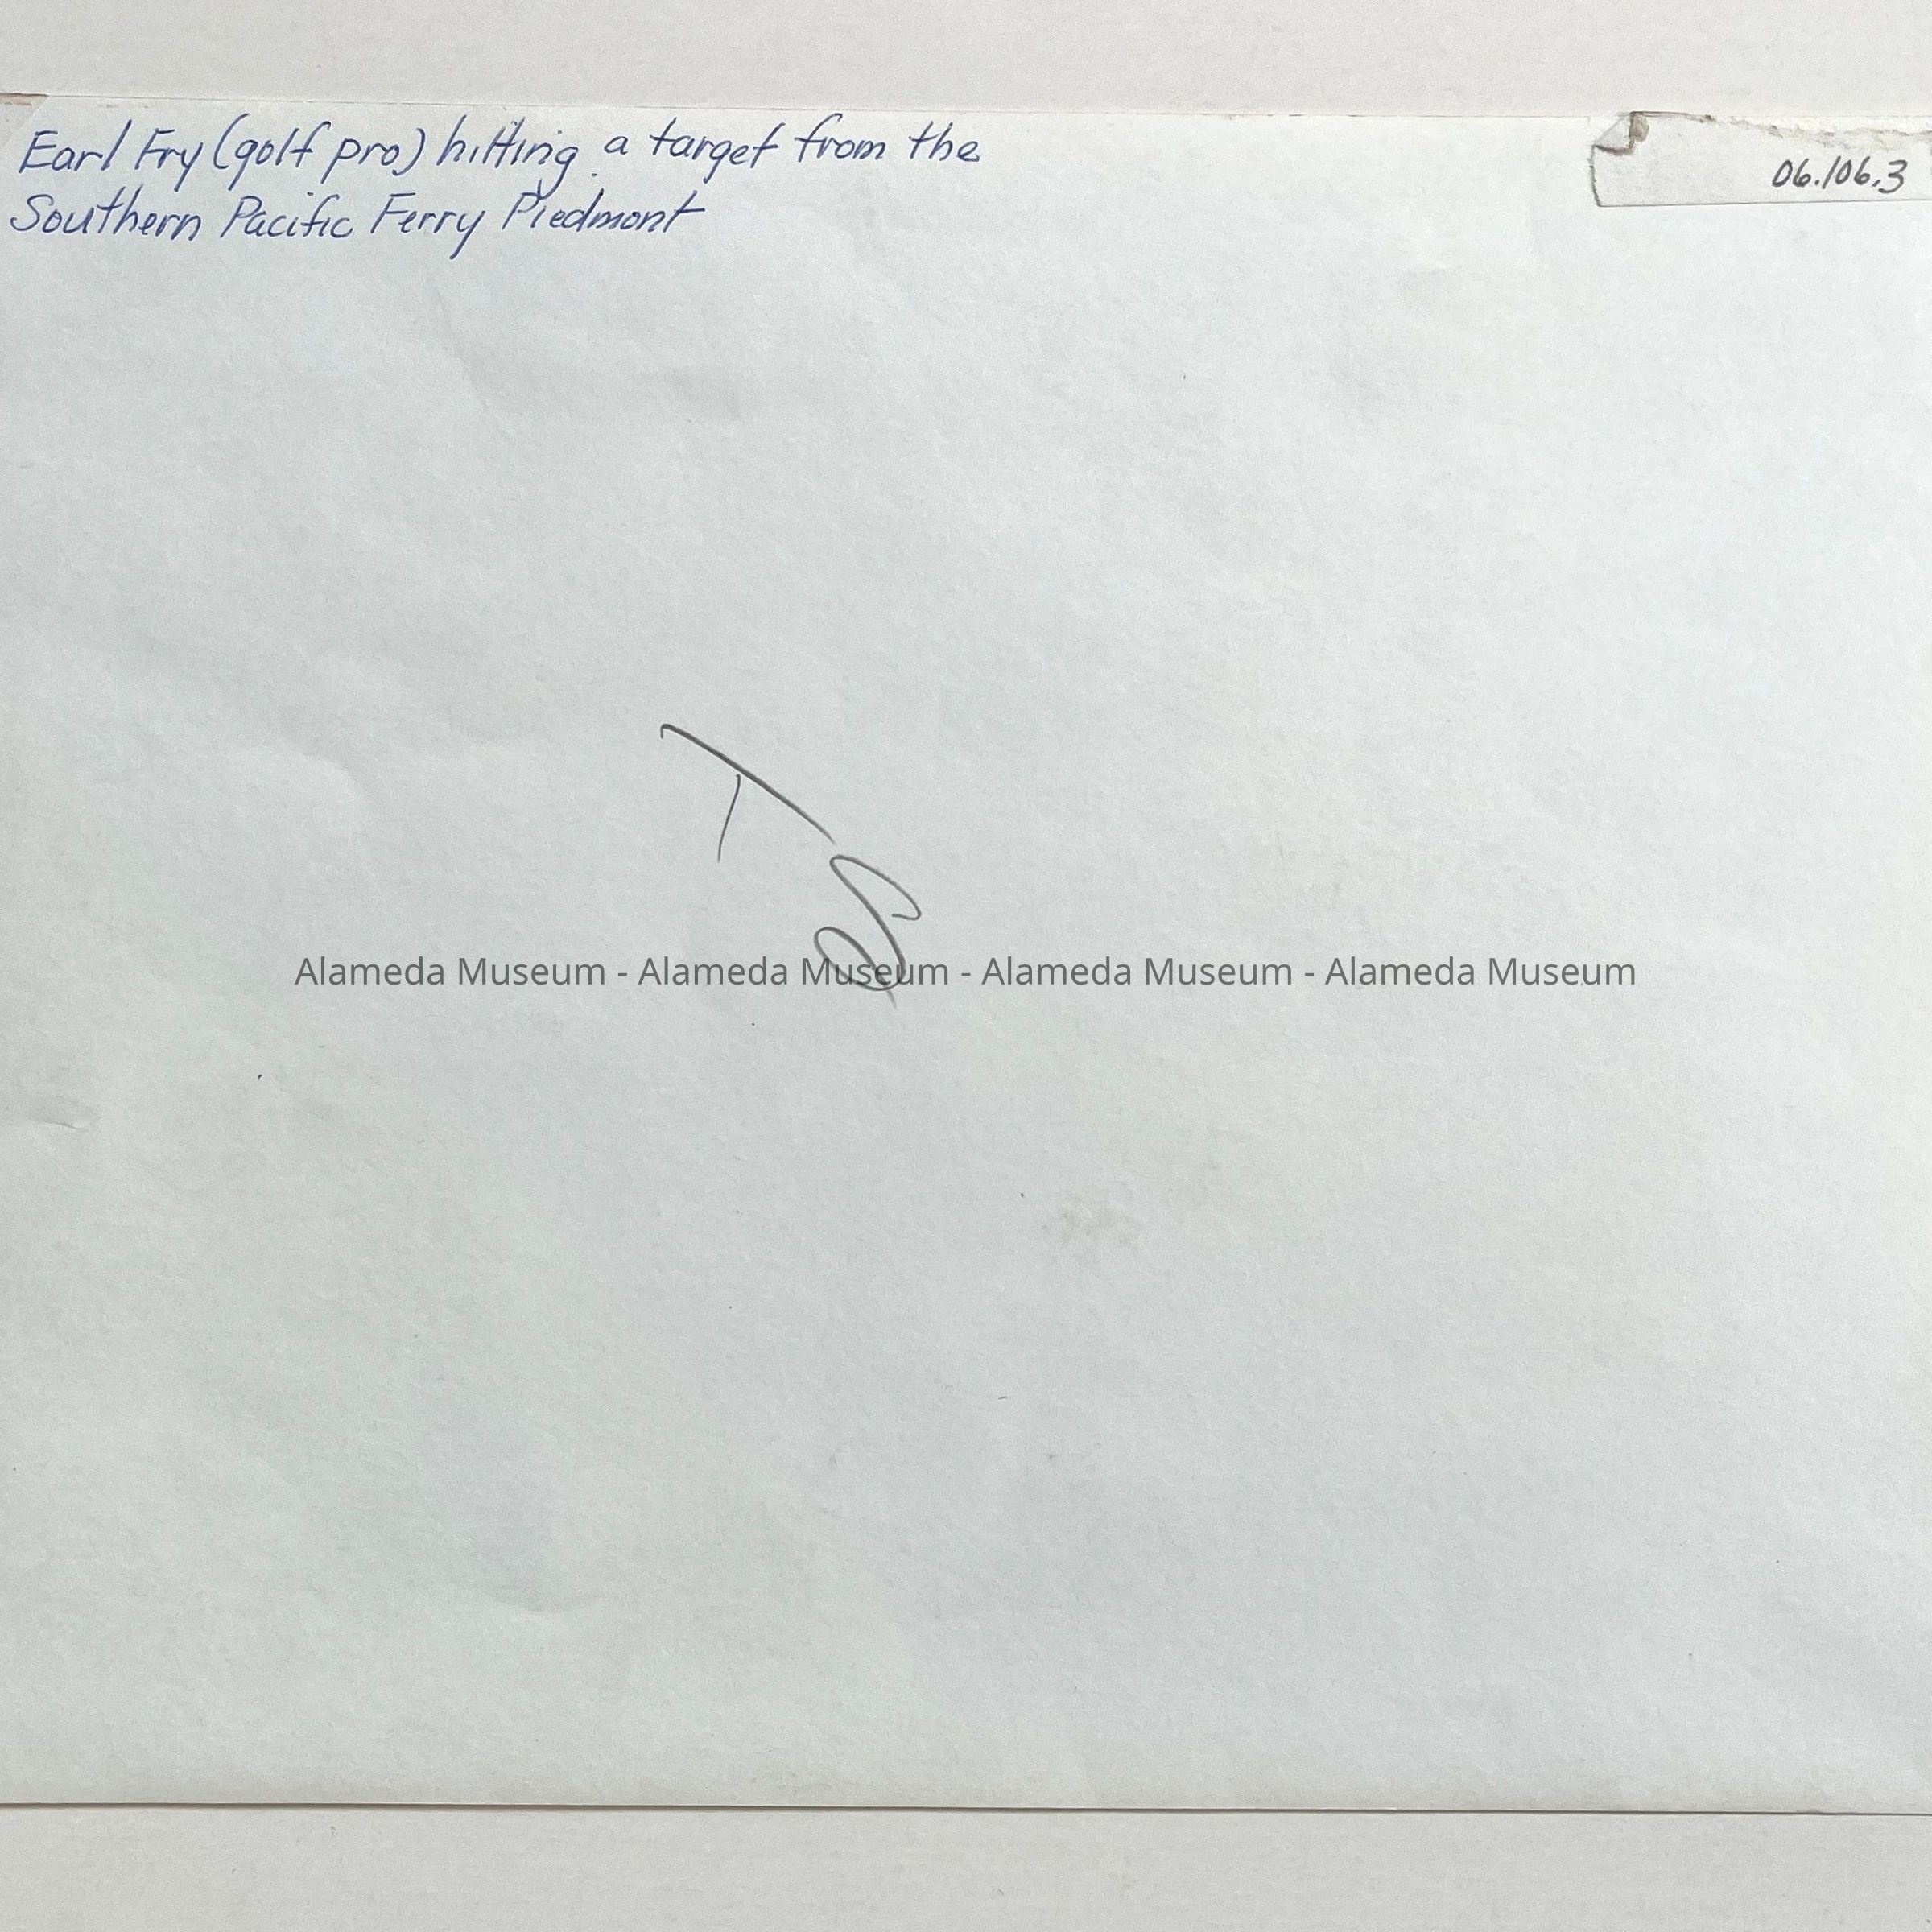 Earl Fry (golf pro) hitting a target from the
Southern Pacific Ferry Piedmont
06.106.3
Alameda Museum - Alameda Museum - Alameda Museum - Alameda Museum